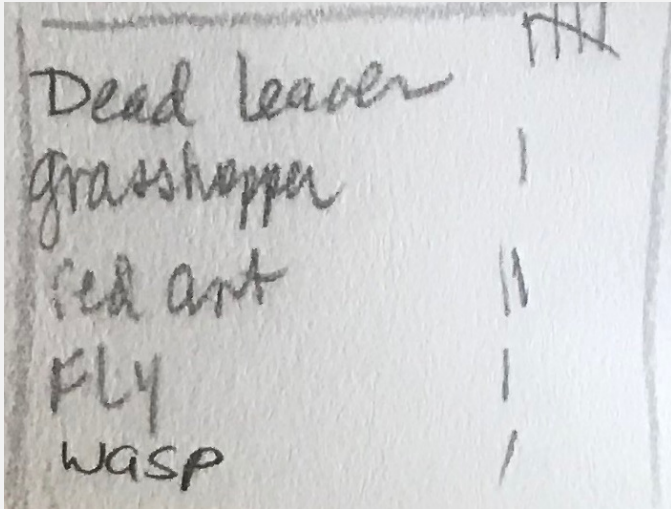 Dead leaves
grasshopper |
red ant ||
FLY |
wasp |